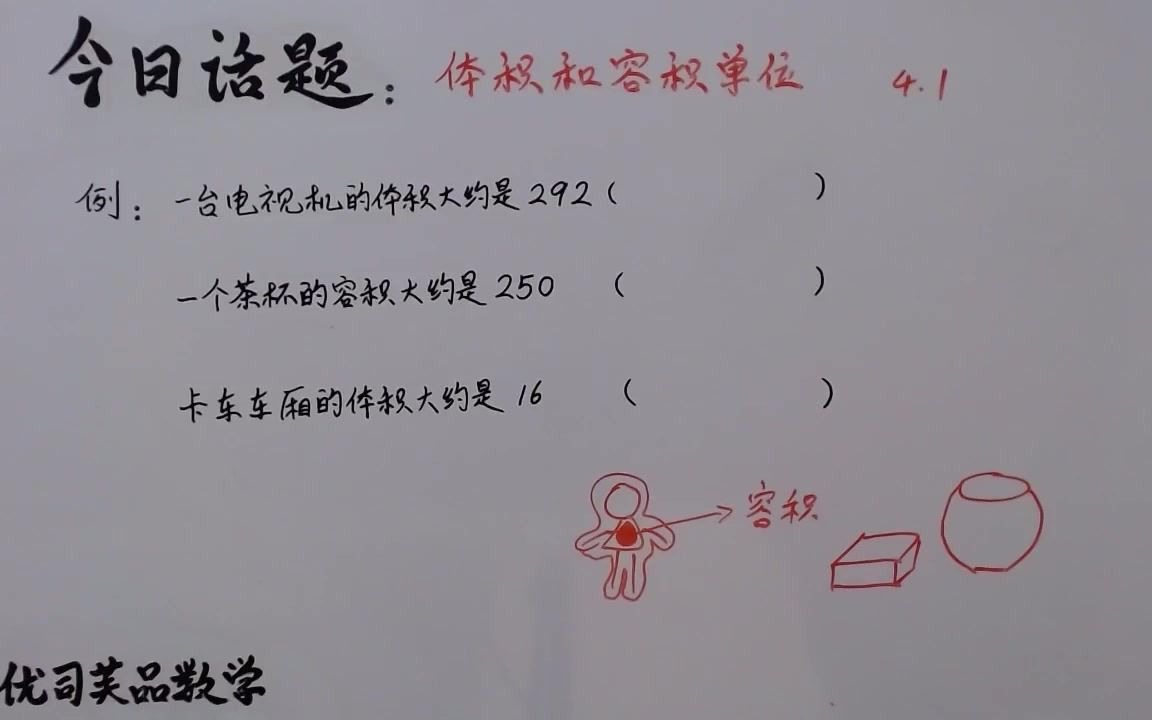 今日话题：体积和容积单位 4.1
例：一台电视机的体积大约是292（ ）
一个茶杯的容积大约是250 （ ）
卡车车厢的体积大约是16 （ ）
容积
优司芙品数学